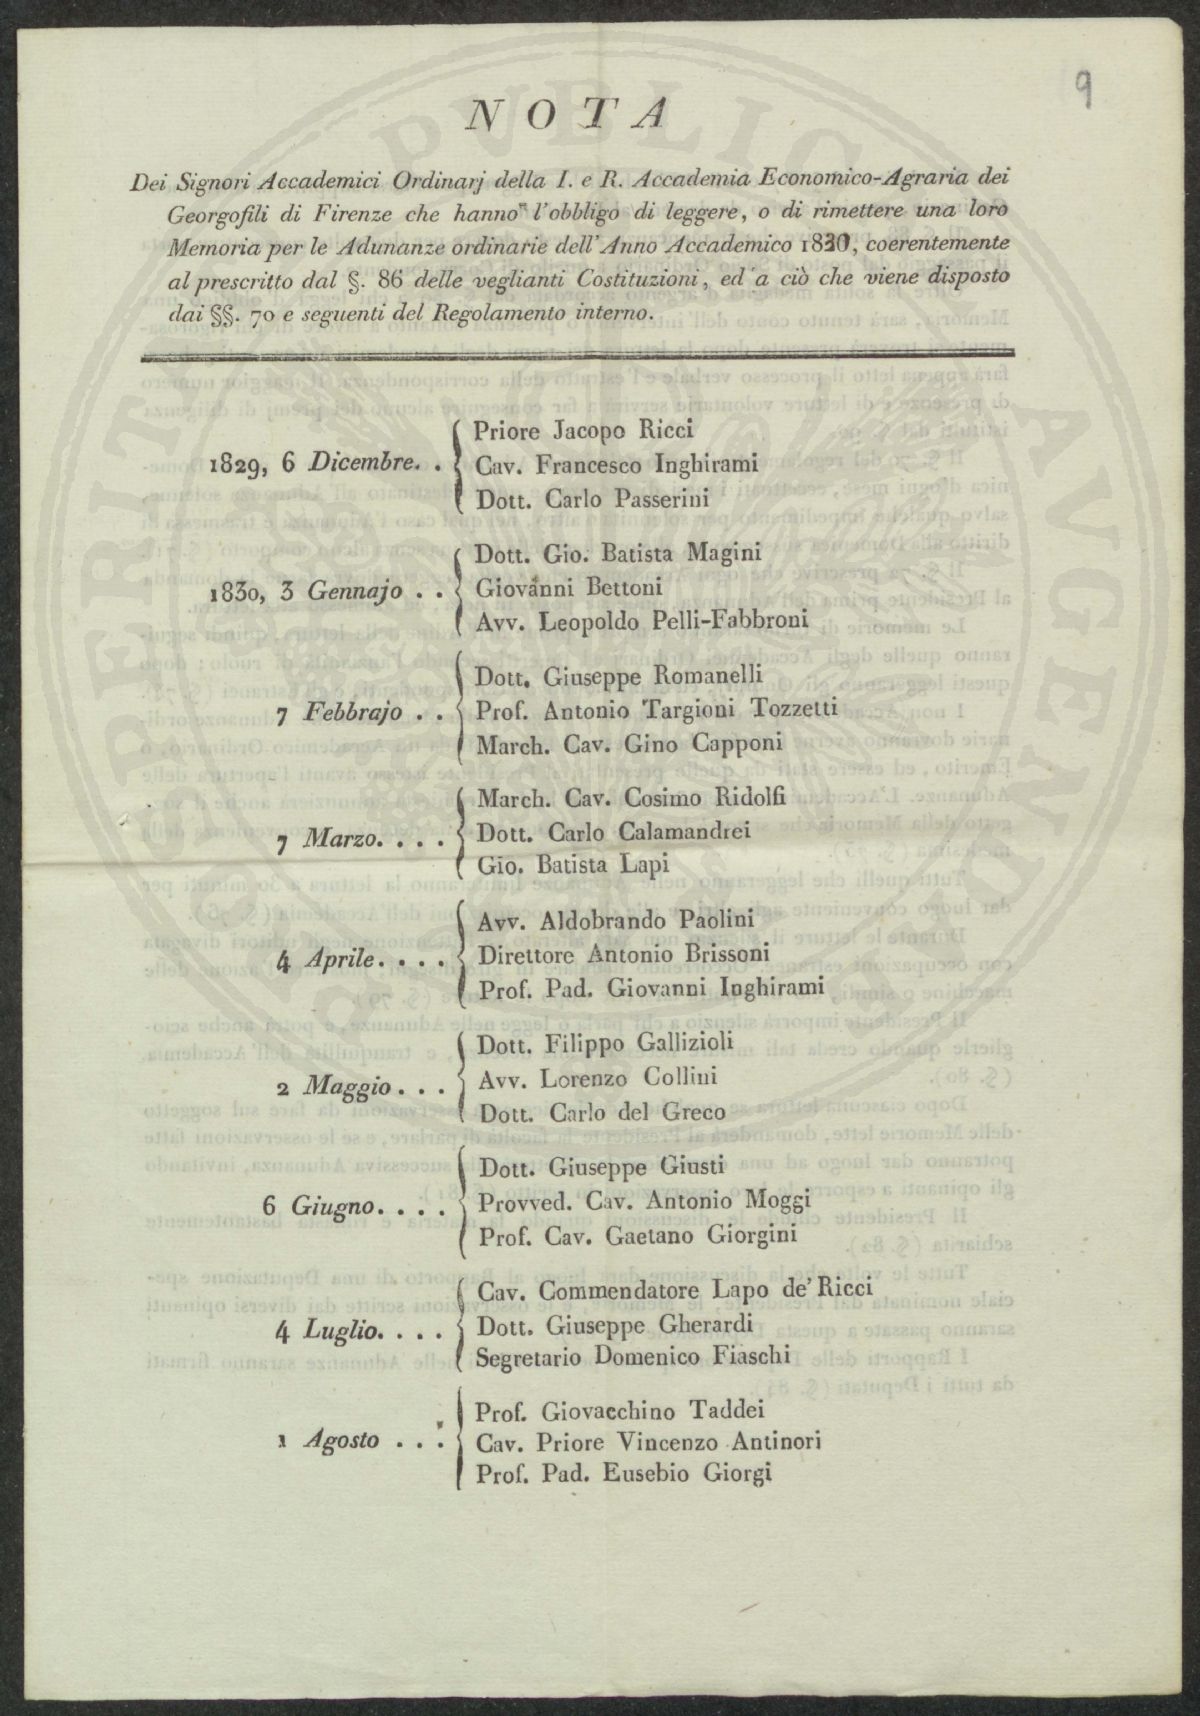 9
NOTA
Dei Signori Accademici Ordinarj della I. e R. Accademia Economico-Agraria dei
Georgofili di Firenze che hanno l'obbligo di leggere, o di rimettere una loro
Memoria per le Adunanze ordinarie dell'Anno Accademico 1830, coerentemente
al prescritto dal §. 86 delle veglianti Costituzioni, ed a ciò che viene disposto
dai §§. 70 e seguenti del Regolamento interno.
Priore Jacopo Ricci
1829, 6 Dicembre. . { Cav. Francesco Inghirami
Dott. Carlo Passerini
Dott. Gio. Batista Magini
1830, 3 Gennajo . . { Giovanni Bettoni
Avv. Leopoldo Pelli-Fabbroni
Dott. Giuseppe Romanelli
7 Febbrajo . . { Prof. Antonio Targioni Tozzetti
March. Cav. Gino Capponi
March. Cav. Cosimo Ridolfi
7 Marzo. . . . { Dott. Carlo Calamandrei
Gio. Batista Lapi
Avv. Aldobrando Paolini
4 Aprile. . . . { Direttore Antonio Brissoni
Prof. Pad. Giovanni Inghirami
Dott. Filippo Gallizioli
2 Maggio . . . { Avv. Lorenzo Collini
Dott. Carlo del Greco
Dott. Giuseppe Giusti
6 Giugno. . . . { Provved. Cav. Antonio Moggi
Prof. Cav. Gaetano Giorgini
Cav. Commendatore Lapo de' Ricci
4 Luglio. . . . { Dott. Giuseppe Gherardi
Segretario Domenico Fiaschi
Prof. Giovacchino Taddei
1 Agosto . . . { Cav. Priore Vincenzo Antinori
Prof. Pad. Eusebio Giorgi
PROSPERITATI PVBLICAE AVGENDAE